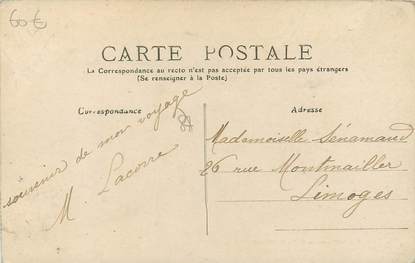 60 €
CARTE POSTALE
La Correspondance au recto n'est pas acceptée par tous les pays étrangers
(Se renseigner à la Poste)
Correspondance
souvenir de mon voyage
M. Lacorre
Adresse
Mademoiselle Sénamaud
26 rue Montmailler
Limoges